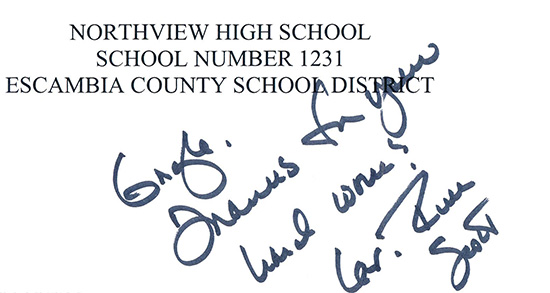 NORTHVIEW HIGH SCHOOL
SCHOOL NUMBER 1231
ESCAMBIA COUNTY SCHOOL DISTRICT
Gayle.
Thanks for your
hard work!
Gov. Rick
Scott